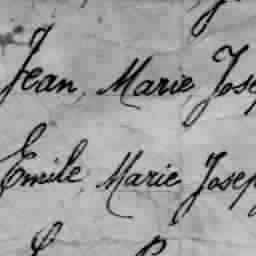 Jean, Marie, Jose
Emile, Marie Josep